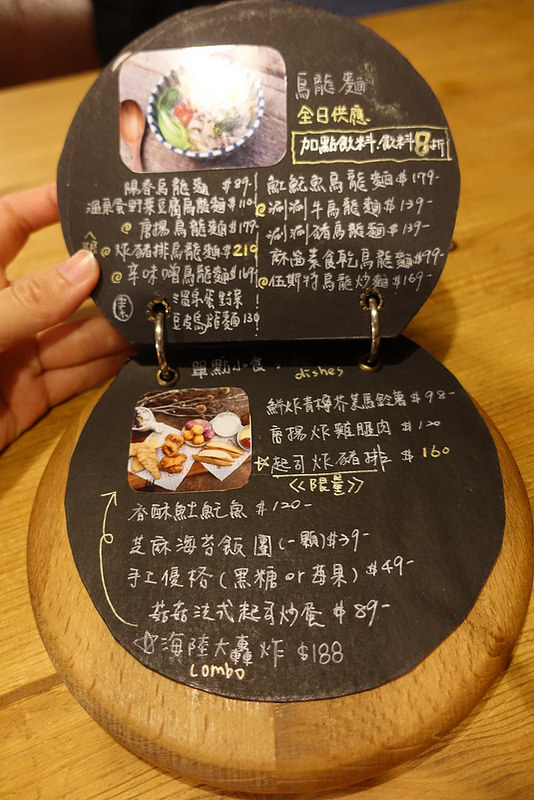 烏龍麵
全日供應
加點飲料.飲料8折
陽春烏龍麵 $89-
溫泉蛋野菜豆腐烏龍麵$110
唐揚烏龍麵$179-
炸豬排烏龍麵$210
辛味噌烏龍麵$169-
素 溫泉蛋野菜
豆皮烏龍麵130
魟魷魚烏龍麵$179-
涮涮牛烏龍麵$139-
涮涮豬烏龍麵$139-
烏龍麵$99-
伍斯特烏龍炒麵$169-
單點小食.
dishes
鮮炸青檸芥茉馬鈴薯$98-
唐揚炸雞腿肉 $120
起司炸豬排 $160
<<限量>>
香酥魟魷魚 $120-
芝麻海苔飯團(一顆)$39-
手工優格(黑糖or莓果) $49-
菇菇法式起司炒蛋 $89-
海陸大轟炸 $188
combo